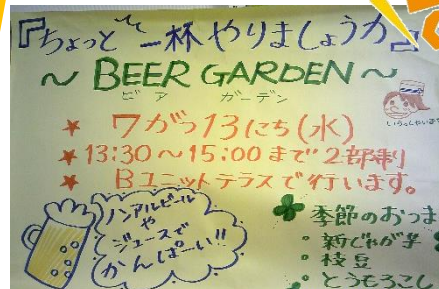 『ちょっと一杯やりましょうか』
～BEER GARDEN～
ビア ガーデン
いらっしゃいませ
★ 7がつ13にち(水)
★ 13:30～15:00まで 2部制
★ Bユニットテラスで行います。
ノンアルビール
や
ジュースで
かんぱーい!!
季節のおつま
・新じゃが芋
・枝豆
・とうもろこし